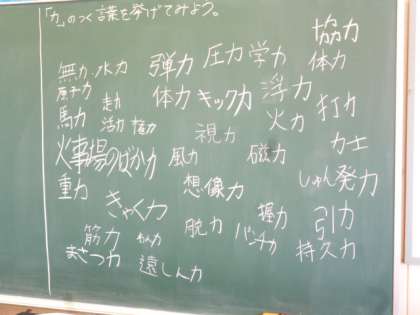 「力」のつく言葉を挙げてみよう。
無力 水力 弾力 圧力 学力 協力
原子力 体力 キック力 浮力 体力
馬力 走力 火力 打力
活力 権力 視力 力士
火事場のばか力 風力 磁力 しゅん発力
重力 きゃく力 想像力
脱力 握力 引力
筋力 パンチ力 持久力
まさつ力 遠しん力